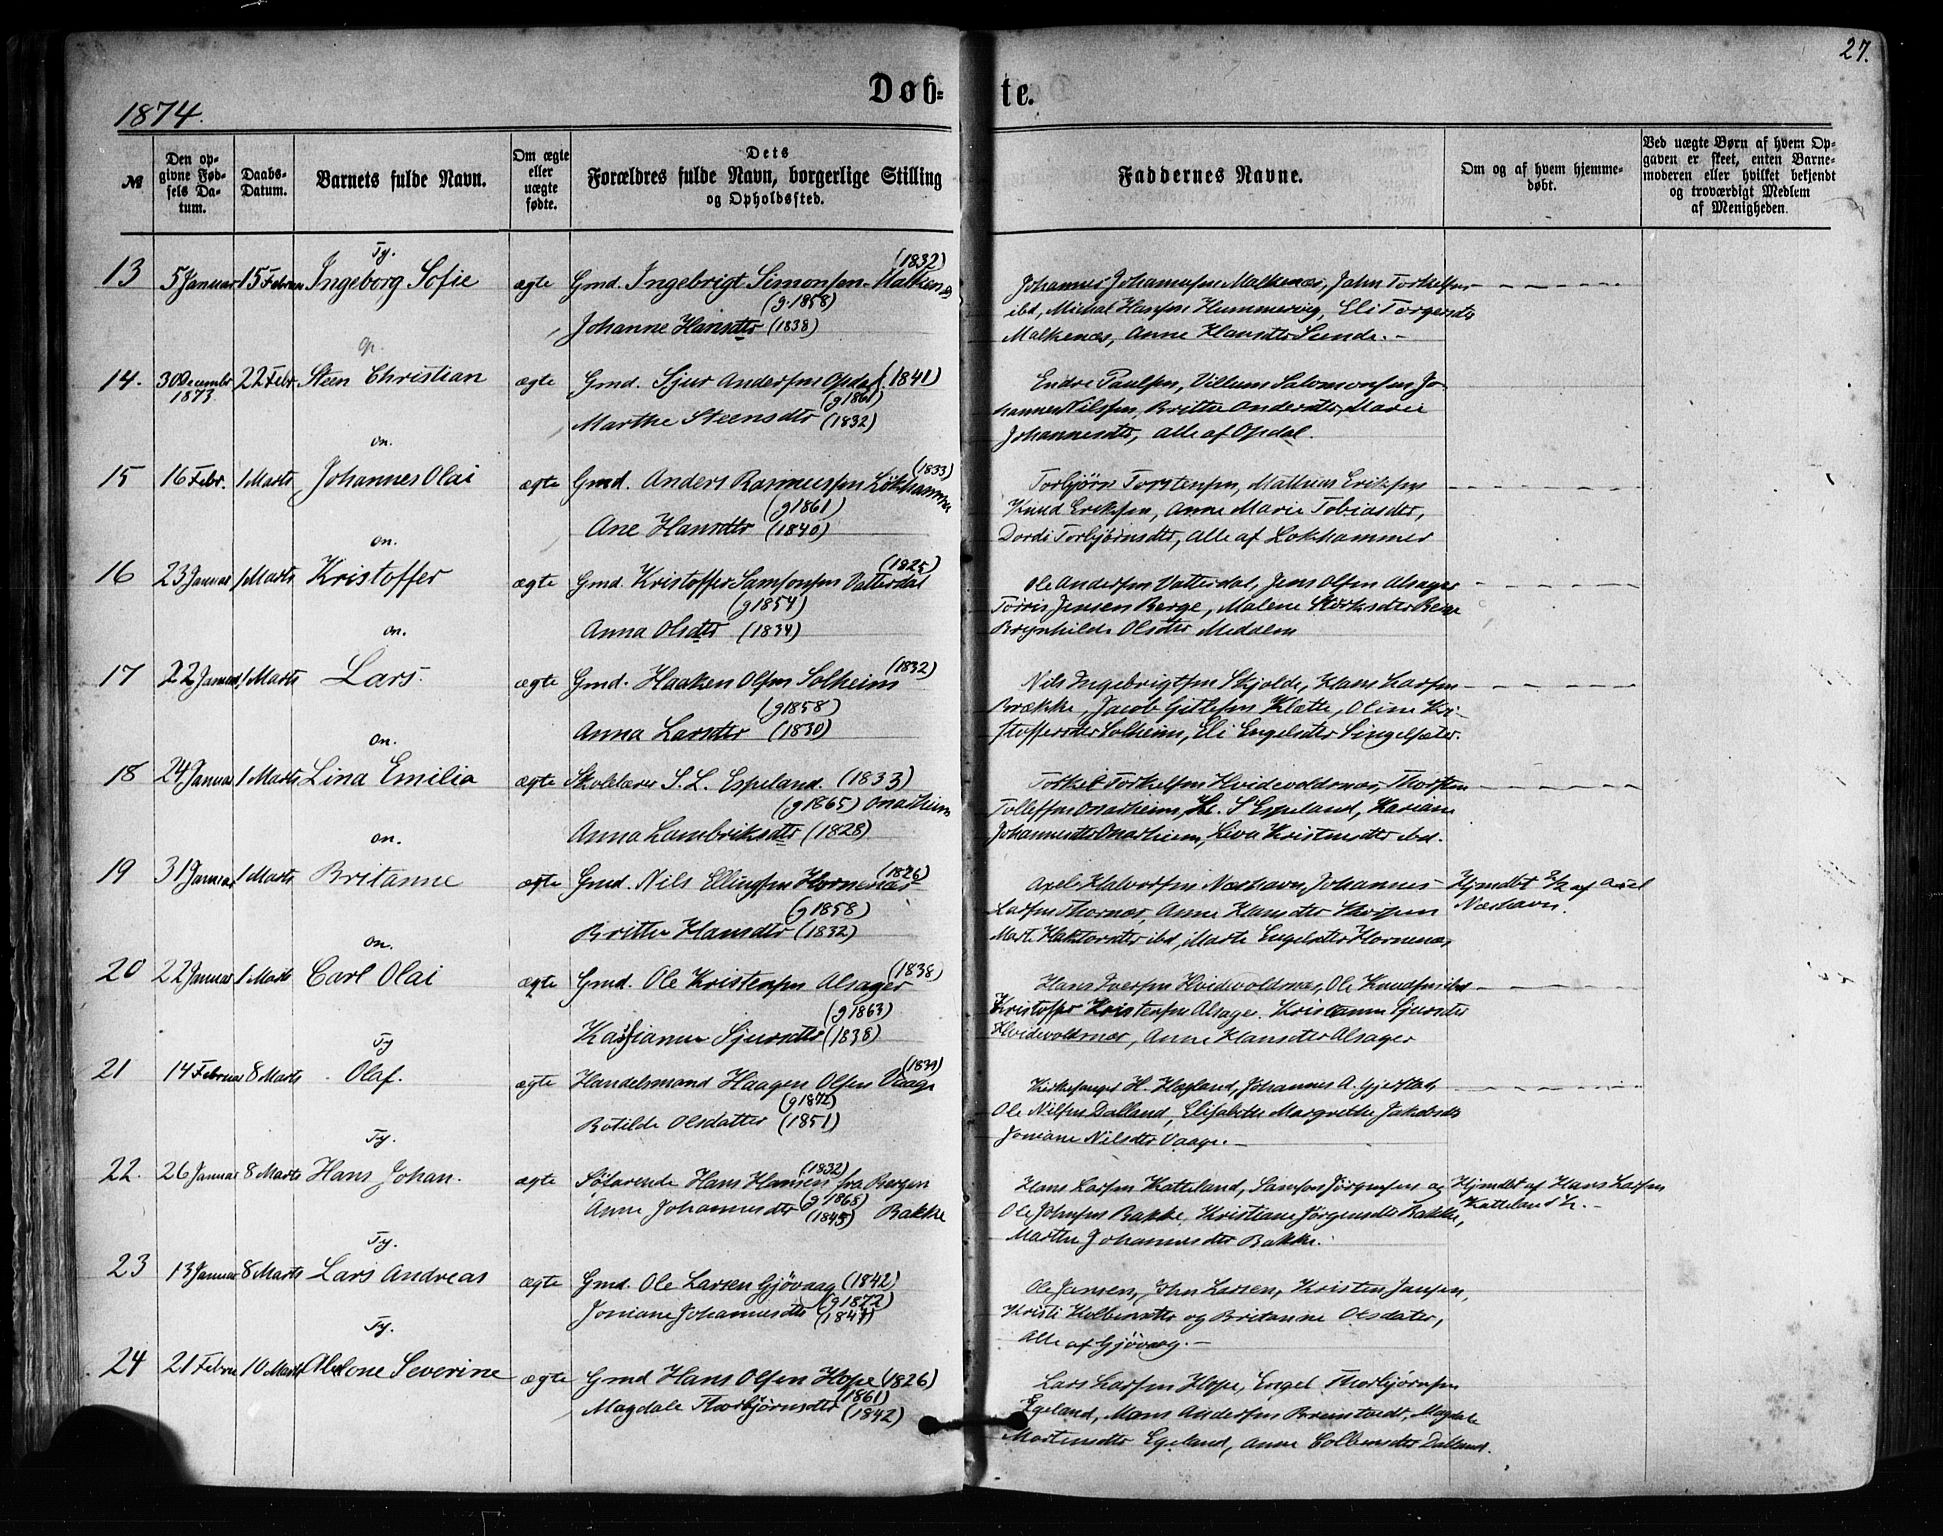 27.
Døb= te.
1874.
№
Den op-
givne Fød-
sels Da-
tum.
Daabs-
Datum.
Barnets fulde Navn.
Om ægte
eller
uægte
fødte.
Dets
Forældres fulde Navn, borgerlige Stilling
og Opholdssted.
Faddernes Navne.
Om og af hvem hjemme-
døbt.
Ved uægte Børn af hvem Op-
gaven er skeet, enten Barne-
moderen eller hvilket bekjendt
og troværdigt Medlem
af Menigheden.
Ty.
13 5 Januar 15 Februar Ingeborg Sofie ægte Gmd. Ingebrigt Simonsen Malkenæs (1832)
(g. 1858)
Johanne Hansdtr (1838)
Johannes Johannesen Malkenæs, John Torkelsen
ibd, Michal Hansen Hummervig, Eli Torgersdtr
Malkenæs, Anne Hansdtr Sunde. -
Op.
14. 30 December 1873 22 Febr Steen Christian ægte Gmd. Sjur Andersen Opdal (1841)
(g 1861)
Marthe Steensdtr (1832)
Endre Paulsen, Villum Salomonsen Jo-
hannes Nilsen, Britha Andersdtr, Marie
Johannesdtr, alle af Opdal.
On.
15 16 Febr. 1 Marts Johannes Olai ægte Gmd. Anders Rasmussen Lokhammer (1833)
(g 1861)
Ane Hansdtr (1840)
Torbjørn Torstensen, Mathias Eriksen
Knud Eriksen, Anne Marie Tobiasdtr,
Dordi Torbjørnsdtr, alle af Lokhammer
On.
16 23 Januar 1 Marts Kristoffer ægte Gmd. Kristoffer Samsonsen Vatterdal (1825)
(g 1854)
Anna Olsdtr (1834)
Ole Andersen Vatterdal, Jens Olsen Alsager
Torris Jensen Berge, Malene Berge
Brynhilde Olsdtr Medalen
On.
17 22 Januar 1 Marts Lars. ægte Gmd. Haaken Olsen Solheim (1832)
(g 1858)
Anna Larsdtr (1830)
Nils Ingebrigtsen Skjolde, Hans Larsen
Brække, Jacob Gitlesen Klette, Oline Kri-
stoffersdtr Solheim, Eli Engelsdtr Singelsæter.
On.
18 24 Januar 1 Marts Lina Emilia ægte Skolelærer S. L. Espeland. (1833)
(g 1865) Onarheim
Anna Lambriksdtr (1828)
Torkel Torkelsen Hvidevoldsnæs, Thorsten
Tollefsen Onarheim, S Espeland, Karian
Johannesdtr Onarheim, Liva Kristensdtr ibd.
On.
19 31 Januar 1 Marts Britanne ægte Gmd. Nils Ellingsen Hornenæs (1826)
(g 1858)
Britha Hansdtr (1832)
Axel Halvorsen Næshavn, Johannes
Larsen Thornæs, Anne Hansdtr
Marte ibd, Marte Engelsdtr Hornenæs
Hjmdbt 2/2 af Axel
Næshavn.
On.
20 22 Januar 1 Marts Carl Olai ægte Gmd. Ole Kristensen Alsager (1838)
(g 1863)
Sjursdtr (1838)
Hans Iversen Hvidevoldsnæs, Ole Knudsen ibd
Kristoffer Kristensen Alsager, Kristianne Sjursdtr
Hvidevoldsnæs, Anne Hansdtr Alsager
Ty
21 14 Februar 8 Marts Olaf. ægte Handelsmand Haagen Olsen Vaage
(g 1872)
Botilde Olsdatter (1851)
Kirkesanger H. Høgland, Johannes A. Gjerstad,
Ole Nilsen Dalland, Elisabeth Margrethe Jakobsdtr
Joniane Nilsdtr Vaage. -
Ty.
22. 26 Januar 8 Marts Hans Johan. ægte Søfarende Hans Hansen fra Bergen (1832)
(g 1868)
Anne Johannesdtr (1845) Bakke
Hans Larsen Katteland, Samson Jørgensen og
Ole Johnsen Bakke, Kristiane Jørgensdtr Bakke,
Marthe Johannesdtr Bakke.
Hjmdbt af Hans Larsen
Katteland
Ty.
23 13 Januar 8 Marts Lars Andreas ægte Gmd. Ole Larsen Gjøvaag (1842)
(g 1872)
Joniane Johannesdtr (1847)
Ole Jansen, John Larsen, Kristen Jansen,
Kristi Kolbensdtr og Britanne Olsdater,
Alle af Gjøvaag. -
Ty.
24 21 Februar 10 Marts Abelone Severine ægte Gmd Hans Olsen Hope (1826)
(1861)
Magdale Thorbjørnsdtr (1842)
Lars Larsen Hope, Engel Thorbjørnsen
Egeland, Mons Andersen Bremstvedt, Magdale
Mortensdtr Egeland, Anne Colbensdtr Dalland.